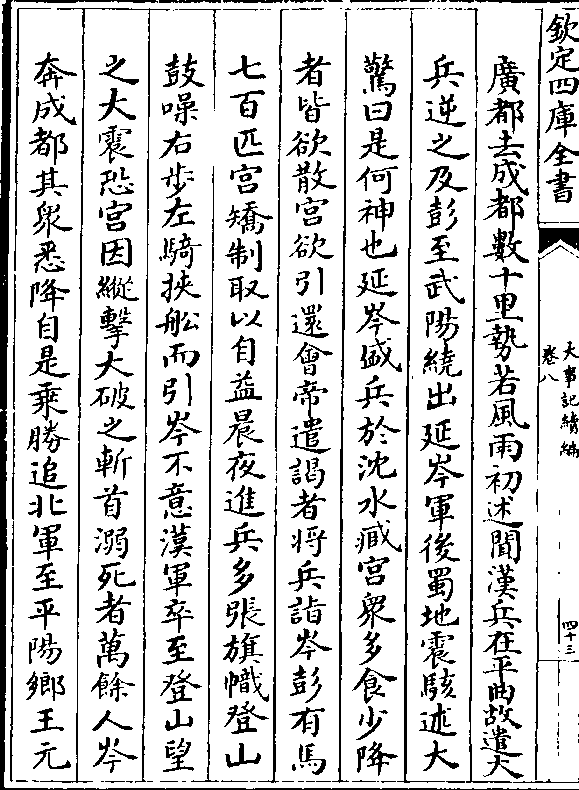 欽定四庫全書
大事記續編
卷八
四十三
廣都去成都數十里勢若風雨初述聞漢兵在平曲故遣大
兵逆之及彭至武陽繞出延岑軍後蜀地震駭述大
驚曰是何神也延岑盛兵於沈水臧宮衆多食少降
者皆欲散宮欲引還會帝遣謁者將兵詣岑彭有馬
七百匹宮矯制取以自益晨夜進兵多張旗幟登山
鼓噪右步左騎挾船而引岑不意漢軍卒至登山望
之大震恐宮因縱擊大破之斬首溺死者萬餘人岑
奔成都其衆悉降自是乗勝追北軍至平陽鄉王元